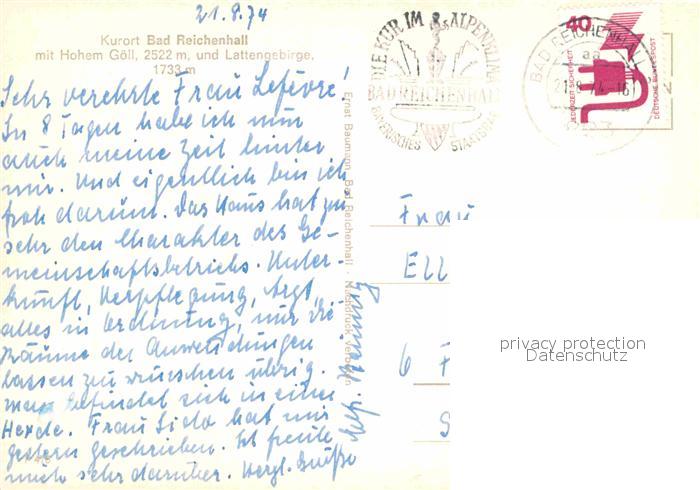 21.8.74
Kurort Bad Reichenhall
mit Hohem Göll, 2522 m, und Lattengebirge,
1733 m
Sehr verehrte Frau Lefèvre!
In 8 Tagen habe ich nun
auch meine Zeit hinter
mir. Und eigentlich bin ich
froh darum. Das Haus hat zu
sehr den Charakter des Ge-
meinschaftsbetriebs. Unter-
kunft, Verpflegung, Arzt
alles in Ordnung, nur die
Räume der Anwendungen
lassen zu wünschen übrig.
man befindet sich in einer
Herde. Frau Lido hat mir
gestern geschrieben. Ich freute
mich sehr darüber. Herzl. Grüße
Ernst Baumann Bad Reichenhall · Nachdruck verboten
DIE KUR IM ALPENKLIMA
BAD REICHENHALL
BAYERISCHES STAATSBAD
BAD REICHENHALL
aa
21.-8.74-16
40
JEDERZEIT SICHERHEIT
DEUTSCHE BUNDESPOST
Frau
Ell
6 F
S
privacy protection
Datenschutz